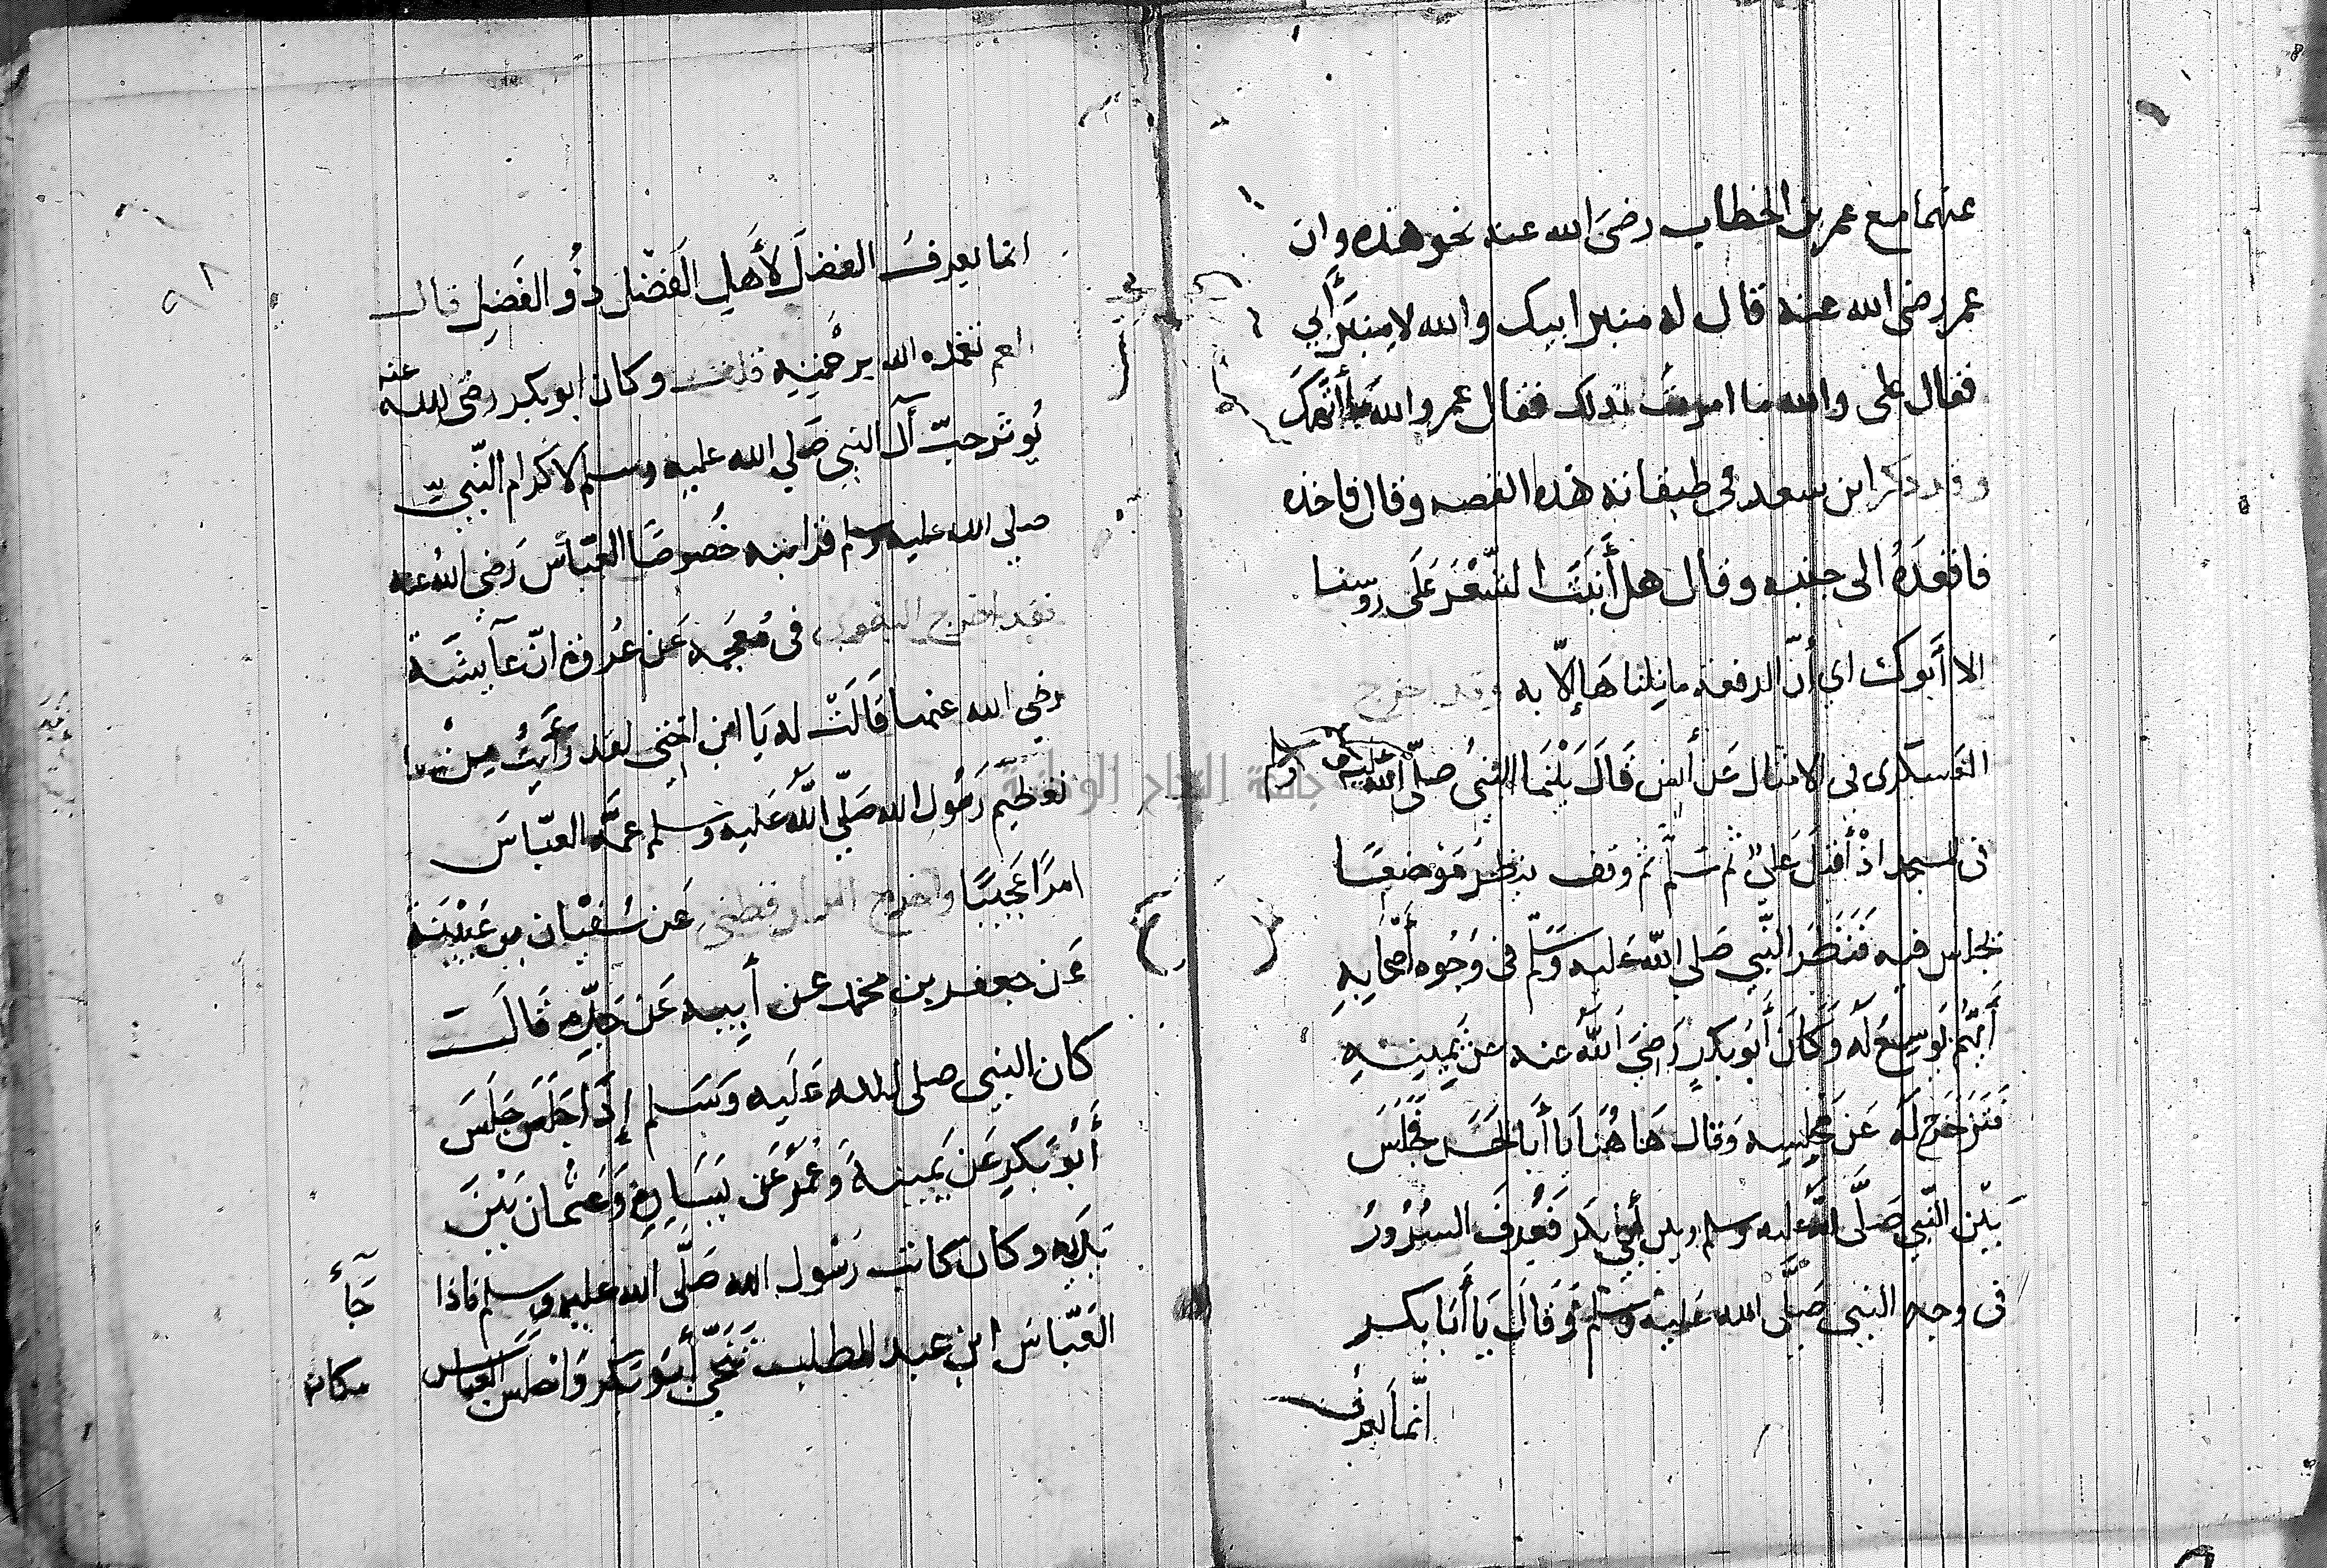 عنهما مع عمر بن الخطاب رضي الله عنه نحو هذه وان
عمر رضى الله عنه قال له منبر ابيك والله لا منبر أبي
فقال على والله ما امرت بذلك فقال عمر والله ما أتهمك
وقد ذكر ابن سعد في طبقاته هذه القصه وقال فاخذه
فاقعده الى جنبه وقال هل أنبت الشعر على روسنا
الا أبوك اي أن الرفعة ما نلناها إلا به وقد اخرج
العسكرى في الامثال عن أنس قال بينما النبي صلى الله عليه وسلم
في المسجد اذ أقبل علي ثم سلم ثم وقف ينظر موضعا
يجلس فيه فنظر النبي صلى الله عليه وسلم في وجوه أصحابه
أيهم يوسع له وكان أبو بكر رضي الله عنه عن يمينه
فتزحزح له عن مجلسه وقال ها هنا يا أبا الحسن فجلس
بين النبي صلى الله عليه وسلم وبين أبي بكر فعرف السرور
في وجه النبي صلى الله عليه وسلم وقال يا أبا بكر
انما يعرف
٩٨
انما يعرف الفضل لأهل الفضل ذو الفضل قال
العم تغمده الله برحمته قلت وكان ابو بكر رضى الله عنه
يوثر حب آل النبي صلي الله عليه وسلم لاكرام النبي
صلي الله عليه وسلم قرابته خصوصا العباس رضي الله عنه
فقد اخرج البغوي في معجمه عن عروة ان عايشة
رضي الله عنها قالت له يا ابن اختي لقد رأيت من
تعظيم رسول الله صلي الله عليه وسلم عمه العباس
امرا عجيبا واخرج الدارقطني عن سفيان بن عيينة
عن جعفر بن محمد عن أبيه عن جده قالت
كان النبي صلى الله عليه وسلم إذا جلس جلس
أبو بكر عن يمينه وعمر عن يساره وعثمان بين
يديه وكان كاتب رسول الله صلى الله عليه وسلم فاذا جآء
العباس ابن عبد المطلب تنحي أبو بكر وجلس العباس مكانه
جامعة النجاح الوطنية